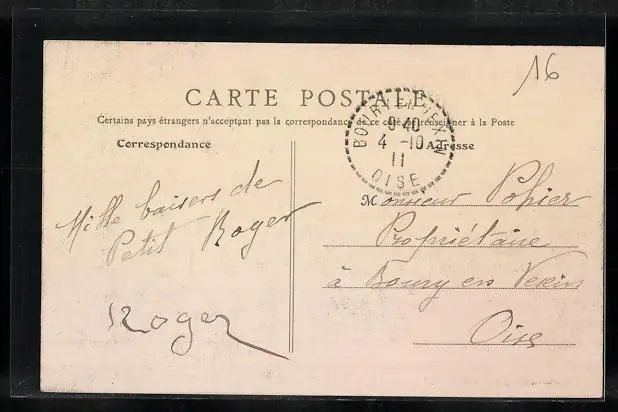 16
CARTE POSTALE
Certains pays étrangers n'acceptent pas la correspondance de ce côté se renseigner à la Poste
Correspondance
Adresse
BOURY-EN-VEXIN
9 40
4 -10
11
OISE
Mille baisers de
Petit Roger
Roger
Monsieur Pohier
Propriétaire
à Boury en Vexin
Oise